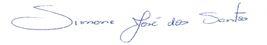 Simone José dos Santos